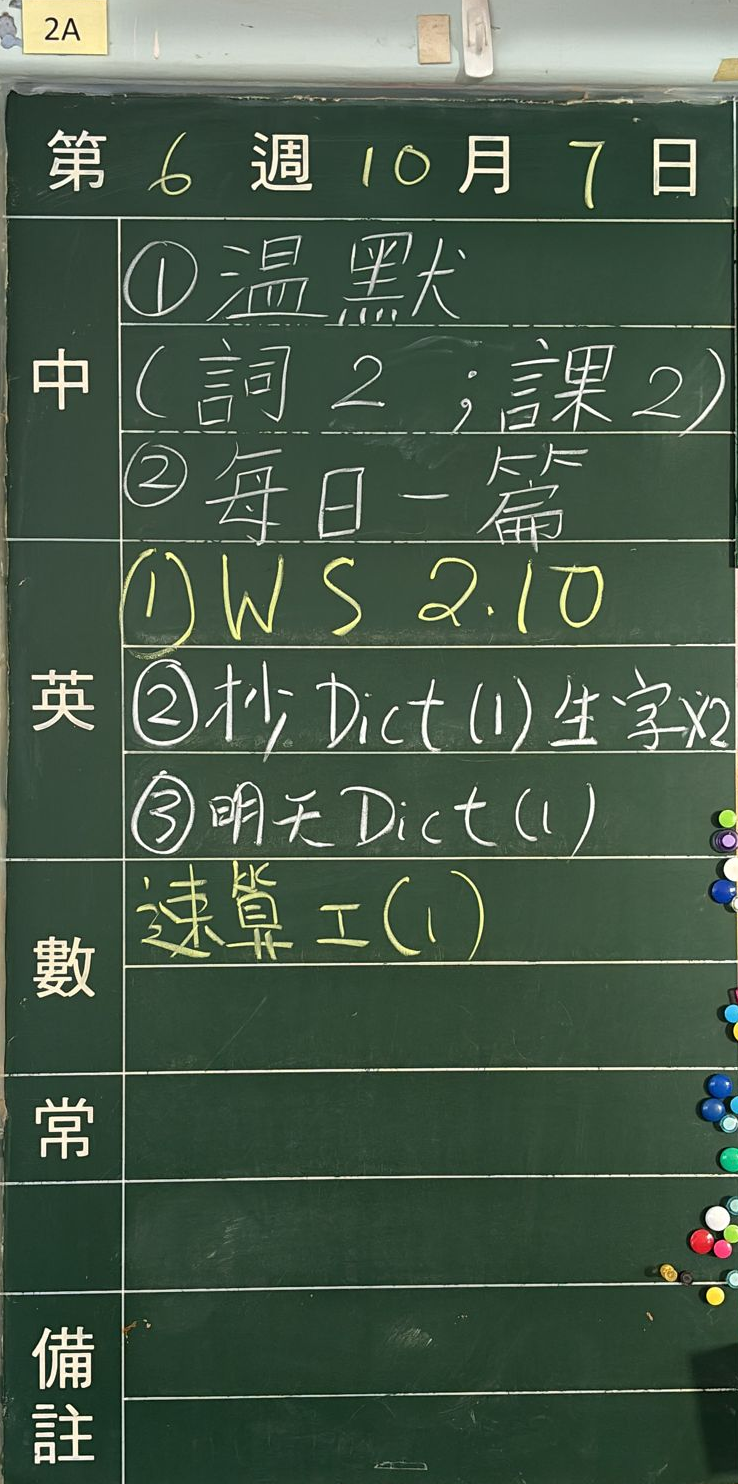 2A
第 6 週 10 月 7 日
中
①溫默
(詞2；課2)
②每日一篇
英
①WS 2.10
②抄Dict(1)生字x2
③明天Dict(1)
數
速算工(1)
常
備註